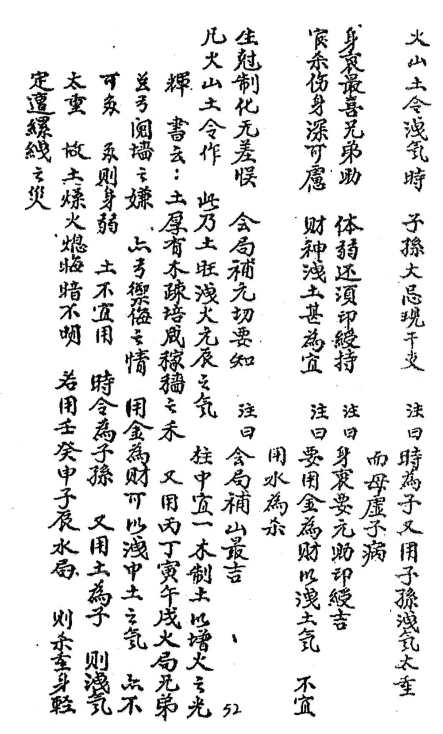 火山土令洩氣時　子孫大忌現干支　注曰時為子又用子孫洩氣太重
而母虛子病
身衰最喜兄弟助　体弱还須印綬持　注曰身衰要元助印綬吉
官杀伤身深可慮　财神洩土甚為宜　注曰要用金為财以洩土氣　不宜
用水為杀
生尅制化无差悮　会局補元切要知　注曰会局補山最吉
凡火山土令作　此乃土旺洩火元辰之気　柱中宜一木制土以增火之光
輝　書云：土厚有木疎培成稼穡之禾　又用丙丁寅午戌火局兄弟
豈丂阋墙之嫌　亦丂禦侮之情　用金為财可以洩中土之気　亦不
可多　多则身弱　土不宜用　時令為子孫　又用土為子　则洩氣
太重　故土燥火熄晦暗不明　若用壬癸申子辰水局　则杀重身輕
定遭縲绁之災
52